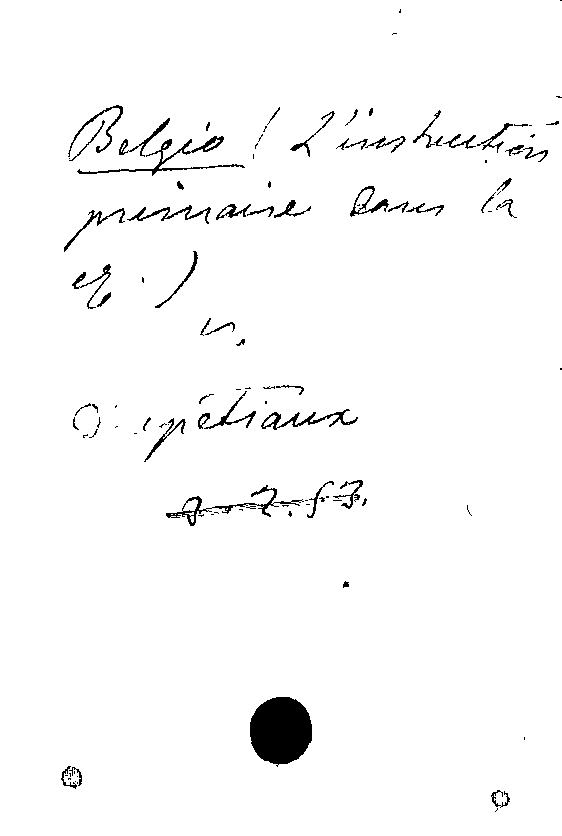 Belgio (L'instruction
primaire dans la
v.
Ducpétiaux